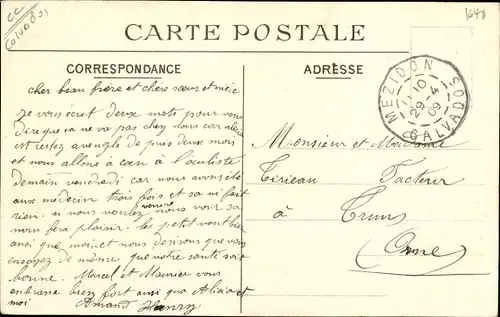 CC
Calvados
1648
CARTE POSTALE
CORRESPONDANCE
ADRESSE
MEZIDON
10
29-4
09
CALVADOS
cher beau frère et chère sœur et nièce
Je vous écret deux mots pour vous
dire que sa ne va pas chez nous car
est restez aveugle de puis deux mois
et nous allons à caen à l'ouliste
demain vendredi car nous avons été
aux medecin trois fois et sa ni fait
rien. si nous voulez venire nous voir sa
nous fera plaisir. les petit vont bien
ainsi que moi. et nous desirons que vous
ensoyez de même que votre santé soit
bonne. Marcel et Maurice vous
enbrasse bien fort ainsi que Alicia et
moi Amand Henry
Monsieur et Madame
Tirieau Facteur
à Trun
Orne